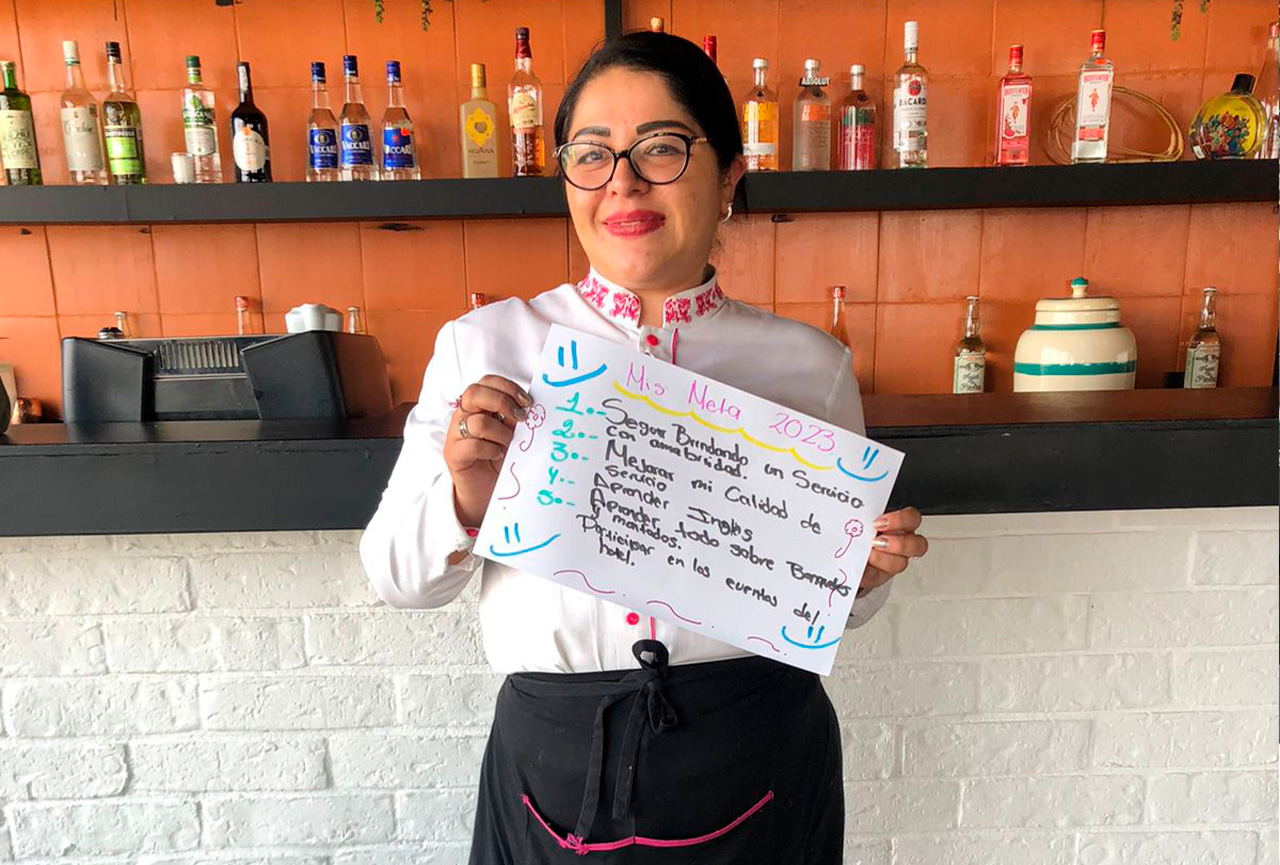 VACCARI
VACCARI
VACCARI
ABSOLUT
BACARDI
BEEFEATER
BEEFEATER
Mis Meta 2023
1.- Seguir Brindando un Servicio
con amabilidad.
2.- Mejorar mi Calidad de
Servicio
3.- Aprender Inglés
4.- Aprender todo sobre Banquetes
y montados.
5.- Participar en los eventos del
hotel.